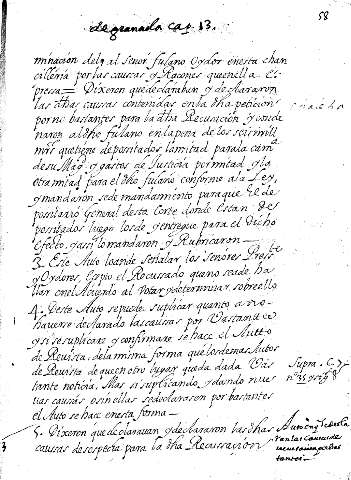 de granada cap. 13.
58
minacion del qual señor fulano Oydor en esta chan
cilleria por las caussas y Raçones que en ella Ex
pressa = Dixeron que declaraban y declararon
las dhas caussas contenidas en la dha peticion
por no bastantes para la dha Recusacion, y conde
naron al dho fulano en la pena de los seis mill
mrs que tiene depositados la mitad para la cama
de su Mag. y gastos de Justicia por mitad y la
otra mitad para el dho fulano conforme a la Ley,
y mandaron se de mandamiento para que el de
positario General desta Corte donde estan de
positados luego los de y entregue para el dicho
efecto, y assi lo mandaron y Rubricaron —
3. Este Auto loande señalar los señores Presste
y Oydores, Excepto el Recussado que no se ade ha
llar en el Acuerdo al Votar y determinar sobre ello
4. Deste Auto se puede suplicar quanto a no
haverse declarado las caussas por Vastantes
y si se suplicare y confirmare se hace el Autto
de Revista, de la misma forma que los demas Autos
de Revista de que en otro lugar queda dada Vas
tante noticia. Mas si suplicando, y dando nue
vas caussas o sin ellas se declarasen por bastantes
el Auto se hace en esta forma —
Supra. C. 7.
nº 35 y sig.
5. Dixeron que declaravan y declararon las dhas
caussas de sospecha para la dha Recussacion
Aun